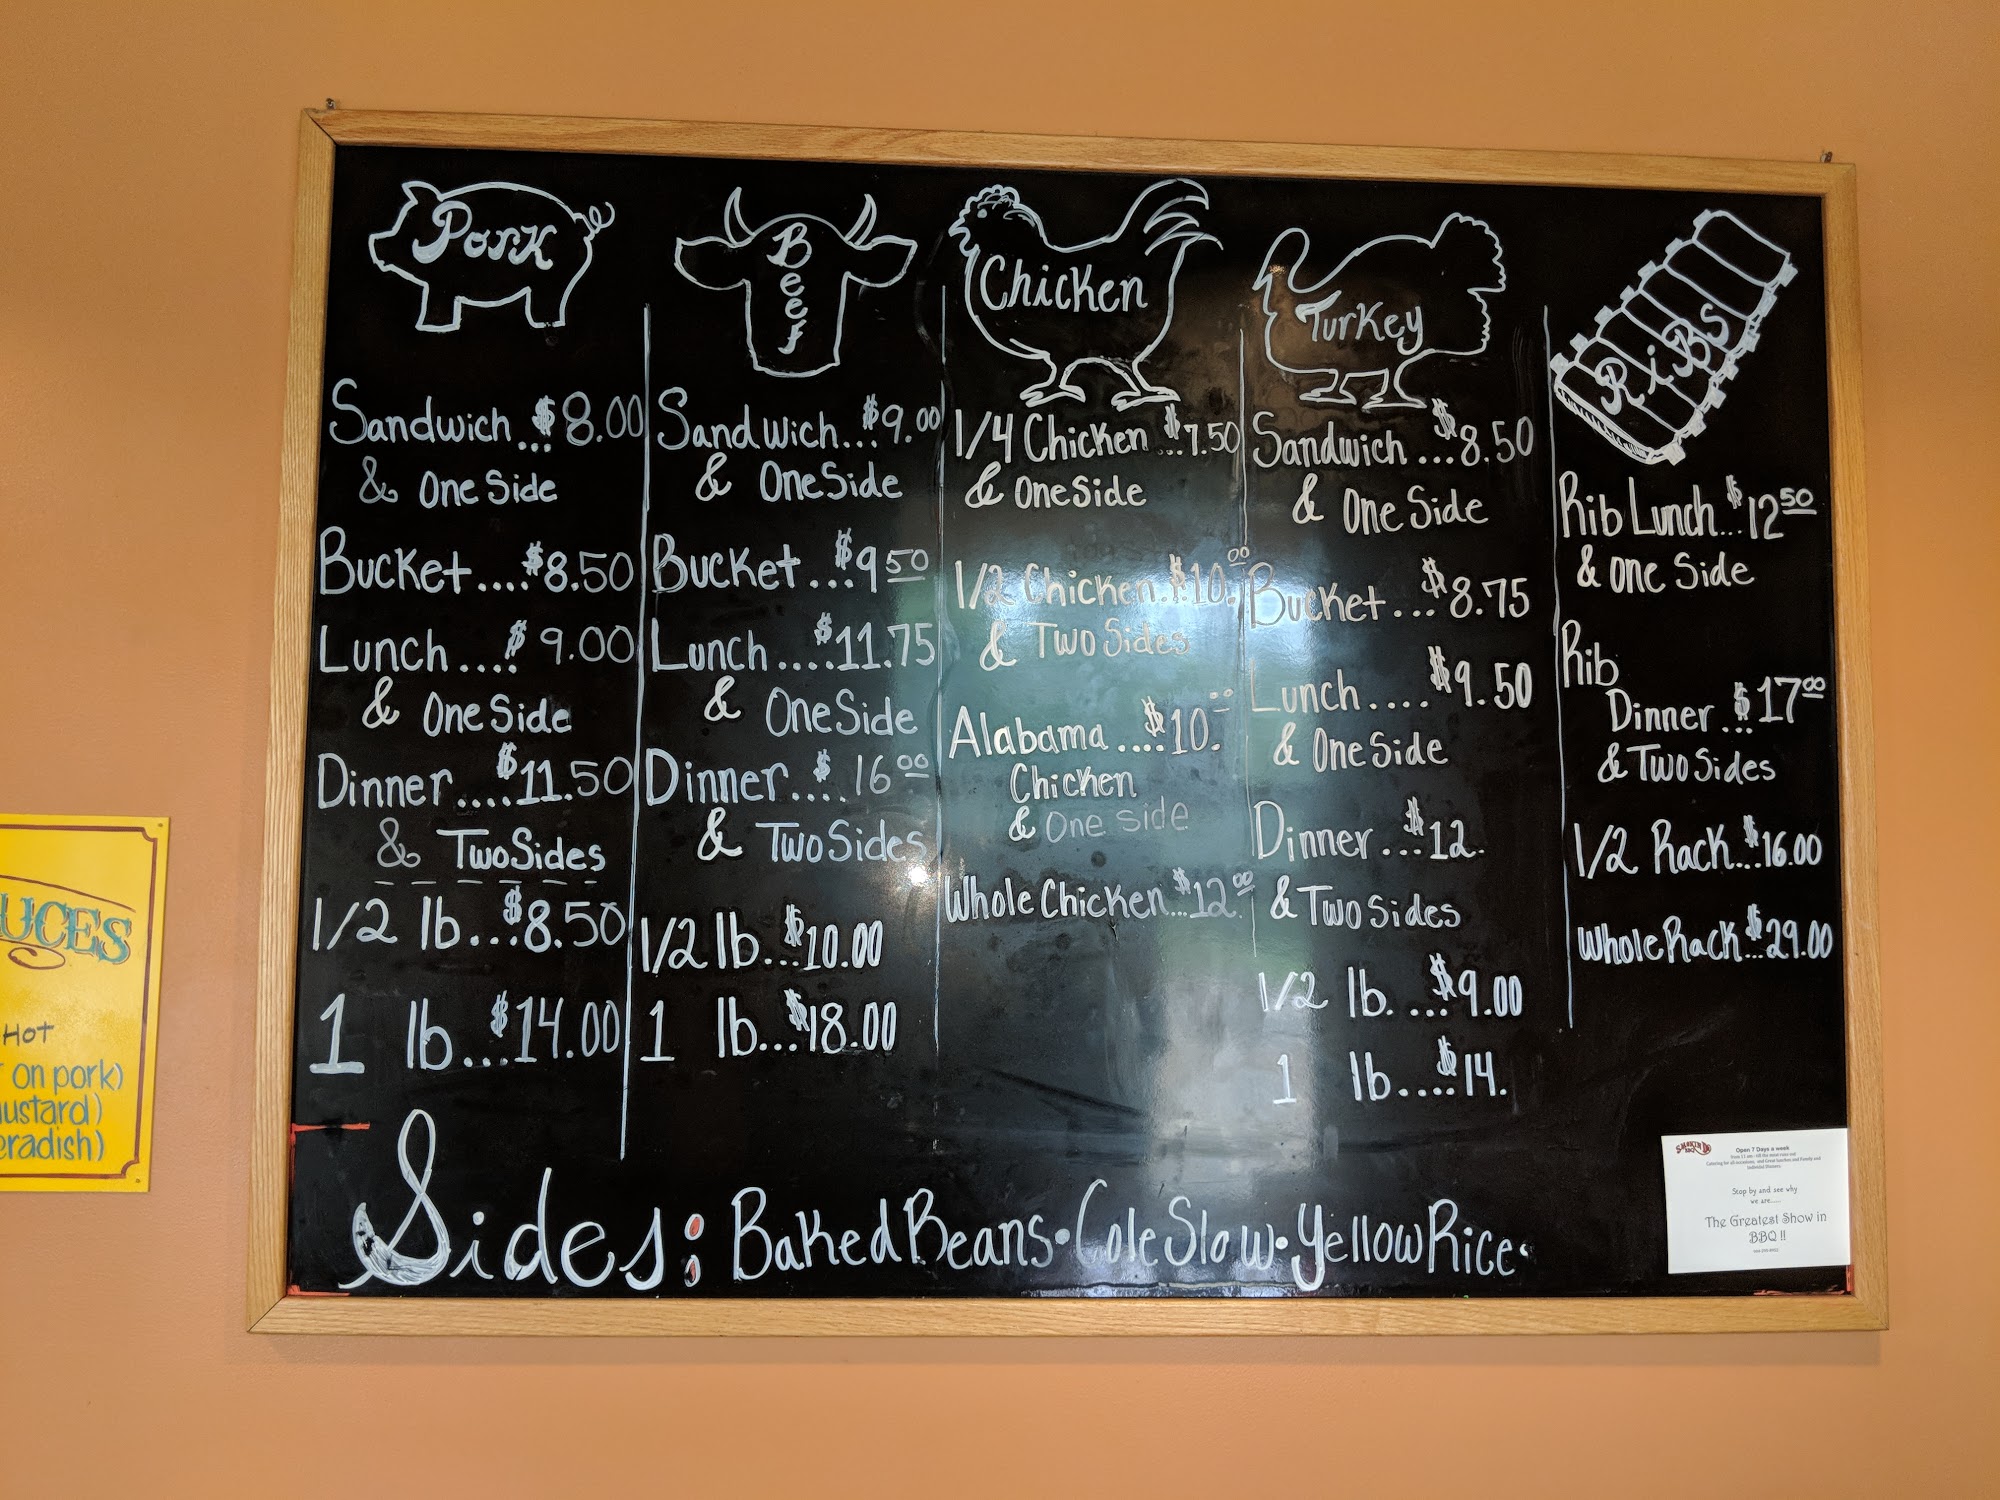 Pork
Sandwich...$8.00
& One Side
Bucket....$8.50
Lunch....$9.00
& One Side
Dinner....$11.50
& Two Sides
1/2 lb...$8.50
1 lb...$14.00
Beef
Sandwich...$9.00
& One Side
Bucket...$9 50
Lunch....$11.75
& One Side
Dinner....$16 00
& Two Sides
1/2 lb...$10.00
1 lb...$18.00
Chicken
1/4 Chicken...$7.50
& One Side
1/2 Chicken.$10.00
& Two Sides
Alabama....$10.00
Chicken
& One Side
Whole Chicken...$12.00
Turkey
Sandwich...$8.50
& One Side
Bucket...$8.75
Lunch....$9.50
& One Side
Dinner...$12.
& Two Sides
1/2 lb....$9.00
1 lb....$14.
RiBS
Rib Lunch...$12 50
& One Side
Rib
Dinner...$17 00
& Two Sides
1/2 Rack...$16.00
Whole Rack...$29.00
Sides: Baked Beans • Cole Slaw • Yellow Rice •
UCES
Hot
on pork)
ustard)
eradish)
BBQ
Open 7 Days a week
Stop by and see why
we are.....
The Greatest Show in
BBQ !!